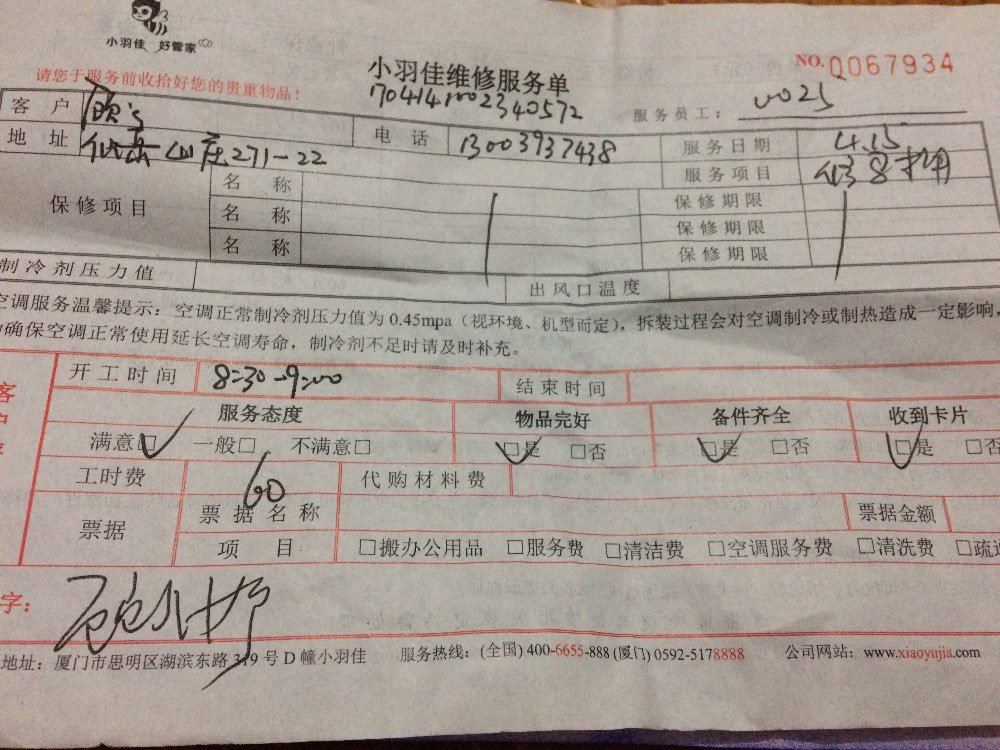 小羽佳 好管家
请您于服务前收拾好您的贵重物品！
小羽佳维修服务单
NO.Q067934
1704141002340572
服务员工： 0025
客户 顾
地址 山庄271-22 电话 13003937438 服务日期 4.15
服务项目
保修项目 名称 保修期限
名称 保修期限
名称 保修期限
制冷剂压力值 出风口温度
空调服务温馨提示：空调正常制冷剂压力值为 0.45mpa（视环境、机型而定），拆装过程会对空调制冷或制热造成一定影响，
确保空调正常使用延长空调寿命，制冷剂不足时请及时补充。
开工时间 8:30-9:00 结束时间
服务态度 物品完好 备件齐全 收到卡片
满意□ 一般□ 不满意□ □是 □否 □是 □否 □是 □否
工时费 60 代购材料费
票据 票据名称 票据金额
项目 □搬办公用品 □服务费 □清洁费 □空调服务费 □清洗费 □疏
字：
地址：厦门市思明区湖滨东路 319 号 D 幢小羽佳 服务热线：(全国) 400-6655-888 (厦门) 0592-5178888 公司网站：www.xiaoyujia.com